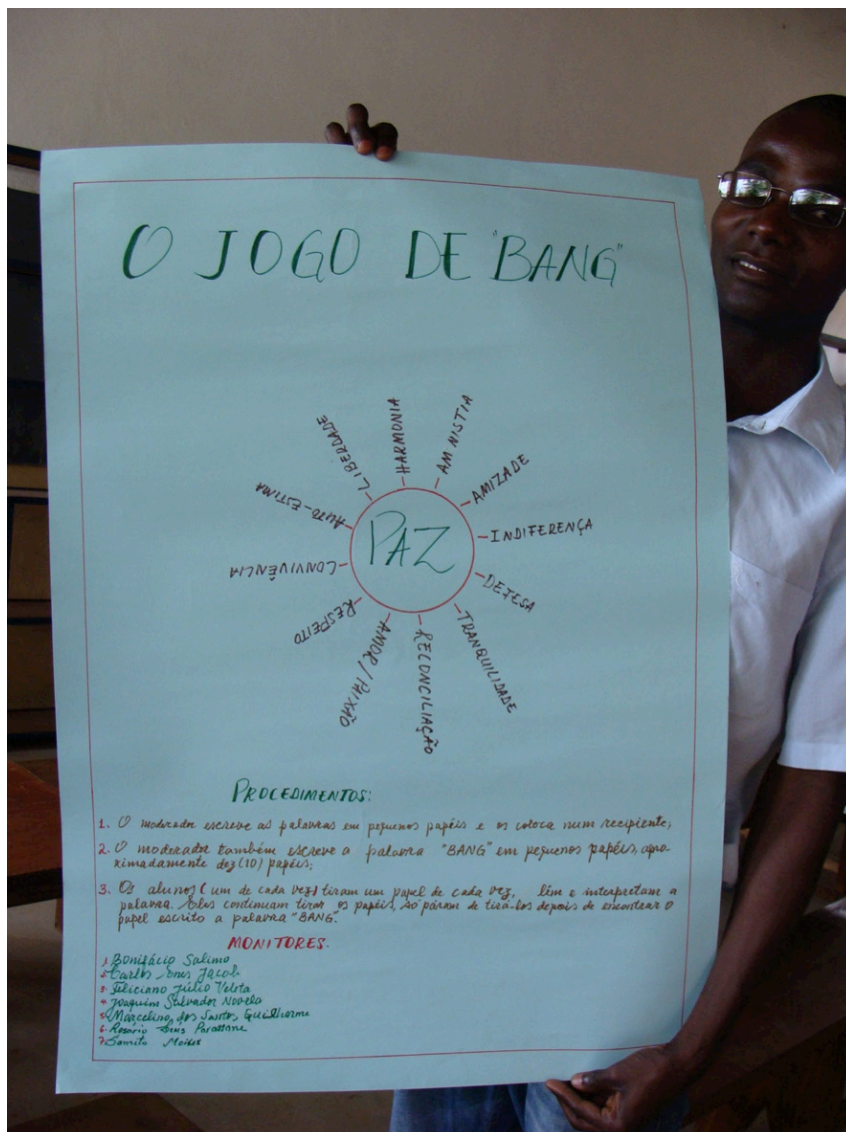 O JOGO DE "BANG"
LIBERDADE
HARMONIA
AMNISTIA
AMIZADE
INDIFERENÇA
DEFESA
TRANQUILIDADE
RECONCILIAÇÃO
AMOR/PAIXÃO
RESPEITO
CONVIVÊNCIA
AUTO-ESTIMA
PAZ
PROCEDIMENTOS:
1. O moderador escreve as palavras em pequenos papéis e os coloca num recipiente;
2. O moderador também escreve a palavra "BANG" em pequenos papéis, apro-
ximadamente dez (10) papéis;
3. Os alunos (um de cada vez) tiram um papel de cada vez, lêm e interpretam a
palavra. Eles continuam tirar os papéis, só páram de tirá-los depois de encontrar o
papel escrito a palavra "BANG".
MONITORES:
1. Bonifácio Salimo
2. Carlos Jacob
3. Feliciano Júlio Velota
4. Joaquim Salvador Novela
5. Marcelino dos Santos Guilherme
6. Rosário
7. Samito